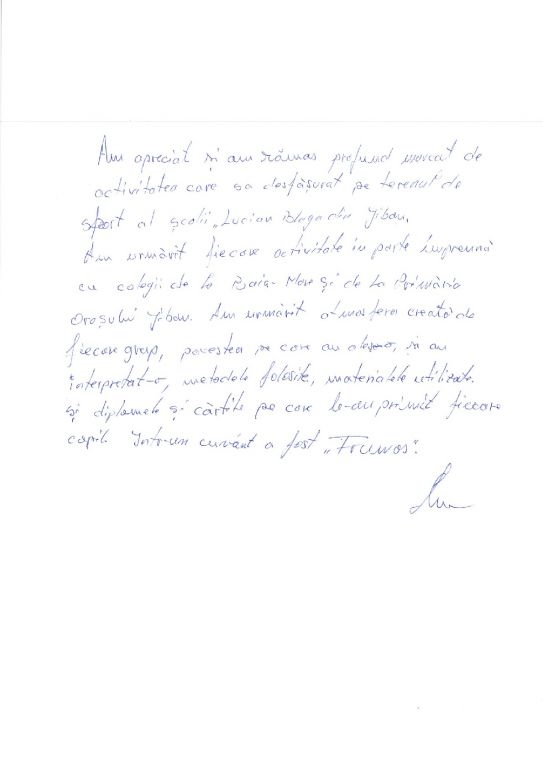 Am apreciat și am rămas profund marcat de
activitatea care sa desfășurat pe terenul de
sport al școlii „Lucian Blaga din Jibou.
Am urmărit fiecare activitate în parte împreună
cu colegii de la Baia-Mare și de la Primăria
Orașului Jibou. Am urmărit atmosfera creată de
fiecare grup, povestea pe care au ales-o, și au
interpretat-o, metodele folosite, materialele utilizate
și diplomele și cărțile pe care le-au primit fiecare
copil. Într-un cuvânt a fost „Frumos".